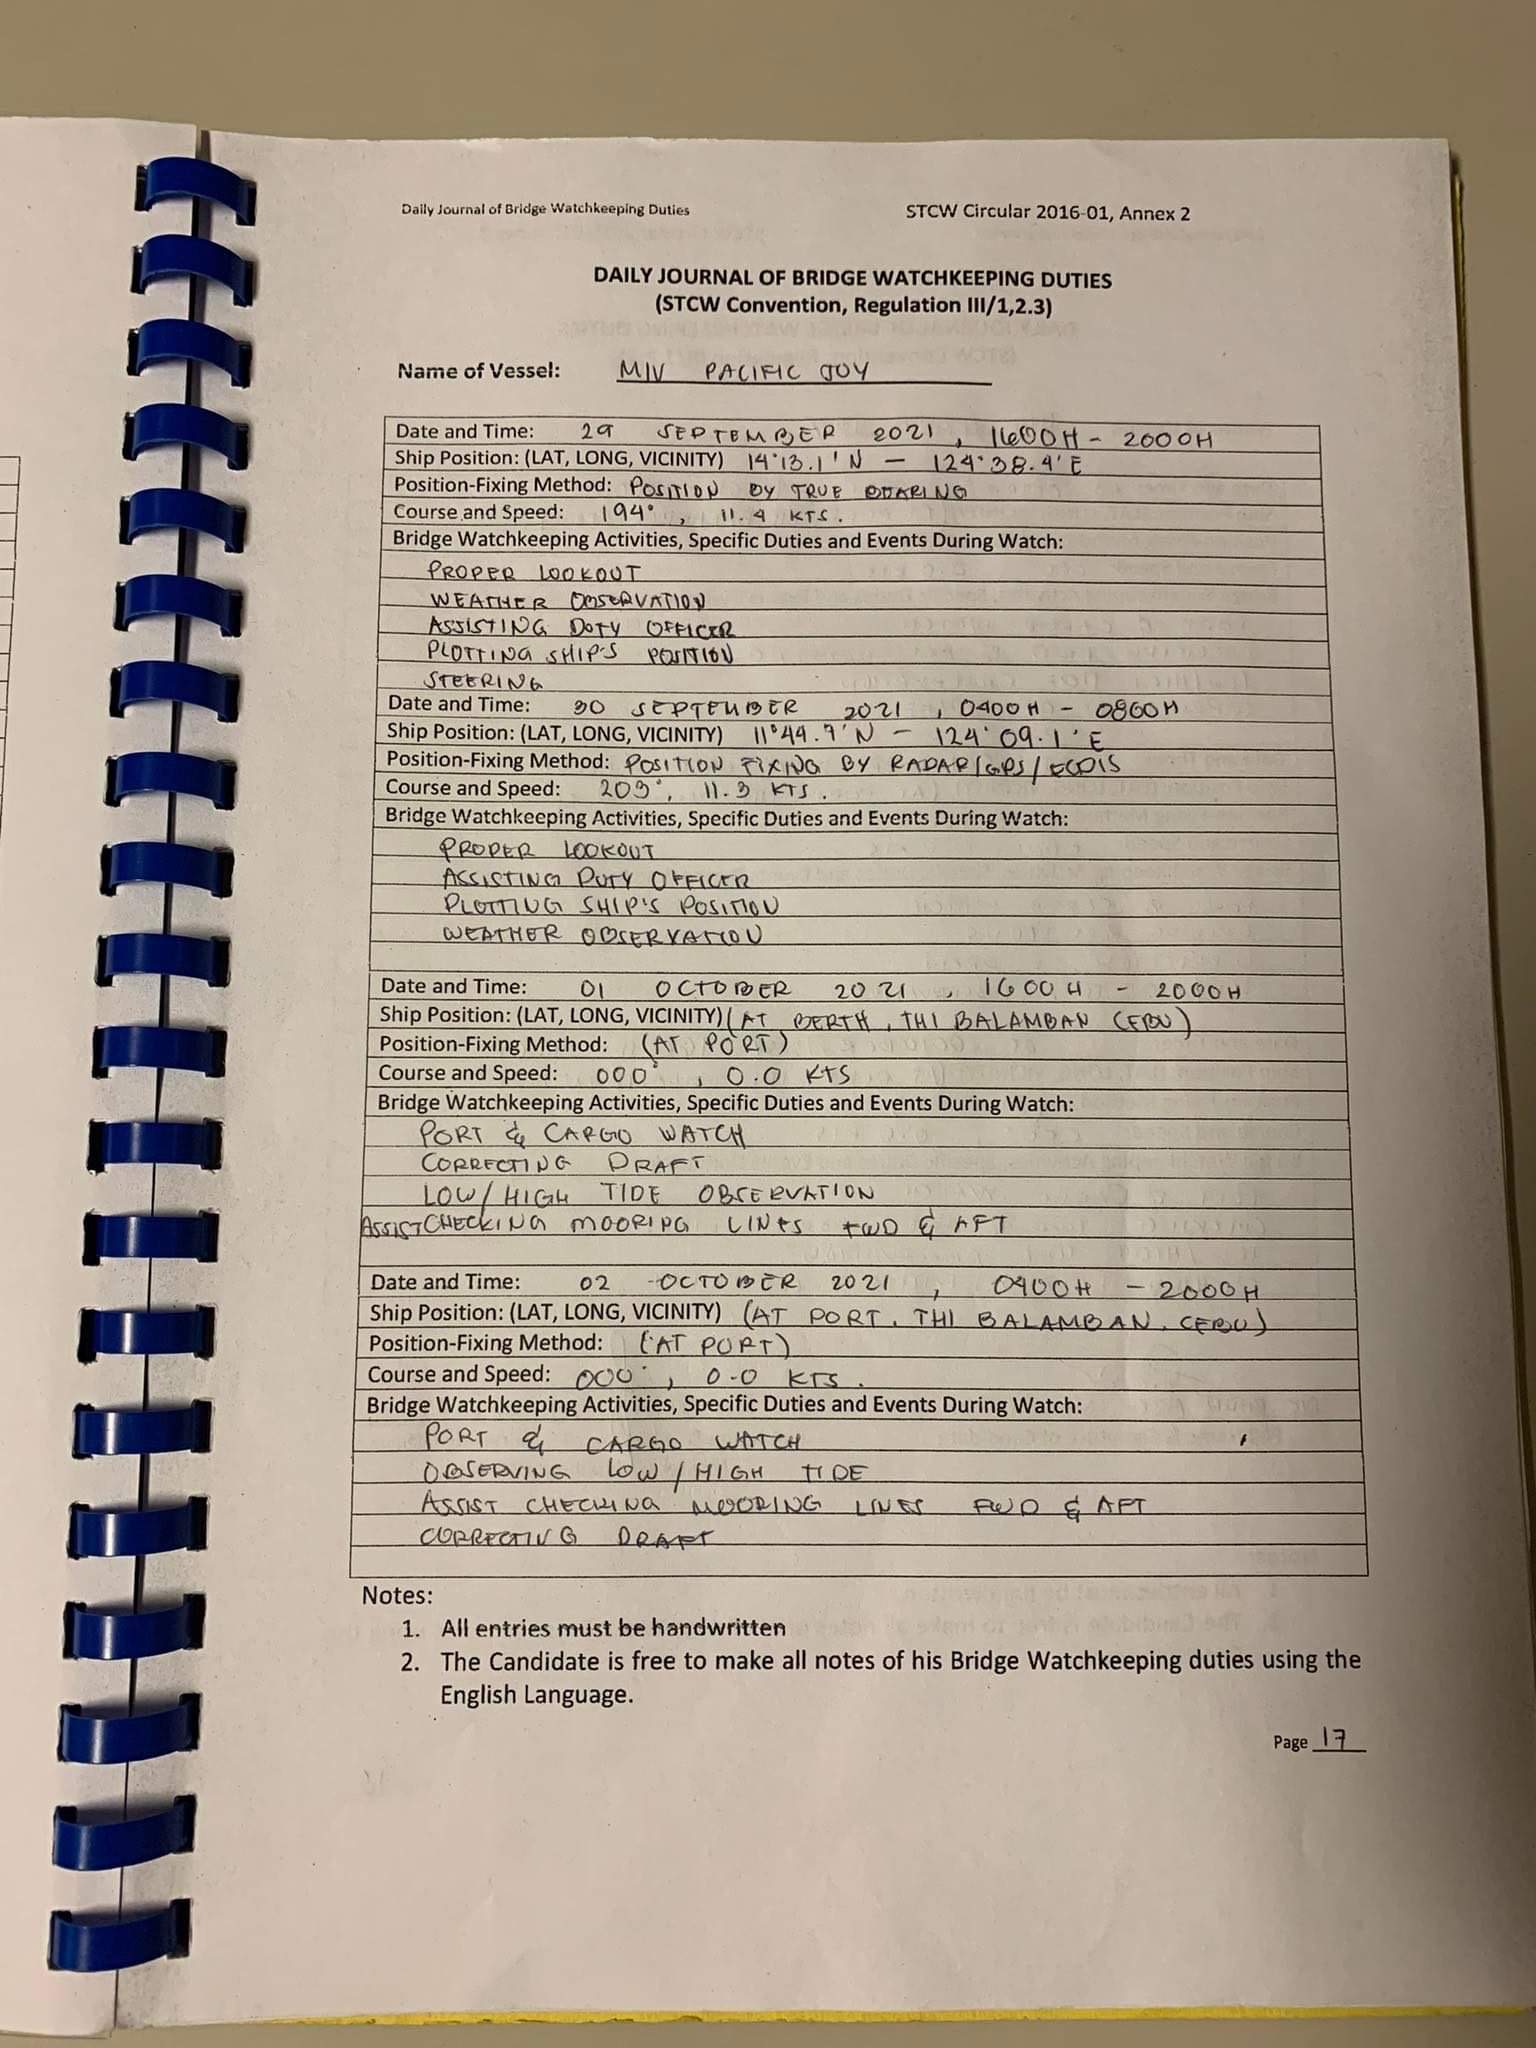 Daily Journal of Bridge Watchkeeping Duties STCW Circular 2016-01, Annex 2
DAILY JOURNAL OF BRIDGE WATCHKEEPING DUTIES
(STCW Convention, Regulation III/1,2.3)
Name of Vessel: M/V PACIFIC JOY
Date and Time: 29 SEPTEMBER 2021, 1600H - 2000H
Ship Position: (LAT, LONG, VICINITY) 14°13.1'N - 124°38.4'E
Position-Fixing Method: POSITION BY TRUE BEARING
Course and Speed: 194°, 11.4 KTS.
Bridge Watchkeeping Activities, Specific Duties and Events During Watch:
PROPER LOOKOUT
WEATHER OBSERVATION
ASSISTING DUTY OFFICER
PLOTTING SHIP'S POSITION
STEERING
Date and Time: 30 SEPTEMBER 2021, 0400H - 0800H
Ship Position: (LAT, LONG, VICINITY) 11°44.9'N - 124°09.1'E
Position-Fixing Method: POSITION FIXING BY RADAR/GPS/ECDIS
Course and Speed: 203°, 11.3 KTS.
Bridge Watchkeeping Activities, Specific Duties and Events During Watch:
PROPER LOOKOUT
ASSISTING DUTY OFFICER
PLOTTING SHIP'S POSITION
WEATHER OBSERVATION
Date and Time: 01 OCTOBER 2021, 1600H - 2000H
Ship Position: (LAT, LONG, VICINITY) (AT BERTH, THI BALAMBAN CEBU)
Position-Fixing Method: (AT PORT)
Course and Speed: 000°, 0.0 KTS
Bridge Watchkeeping Activities, Specific Duties and Events During Watch:
PORT & CARGO WATCH
CORRECTING DRAFT
LOW/HIGH TIDE OBSERVATION
ASSIST CHECKING MOORING LINES FWD & AFT
Date and Time: 02 OCTOBER 2021, 0400H - 2000H
Ship Position: (LAT, LONG, VICINITY) (AT PORT, THI BALAMBAN, CEBU)
Position-Fixing Method: (AT PORT)
Course and Speed: 000°, 0.0 KTS.
Bridge Watchkeeping Activities, Specific Duties and Events During Watch:
PORT & CARGO WATCH
OBSERVING LOW/HIGH TIDE
ASSIST CHECKING MOORING LINES FWD & AFT
CORRECTING DRAFT
Notes:
1. All entries must be handwritten
2. The Candidate is free to make all notes of his Bridge Watchkeeping duties using the
English Language.
Page 17